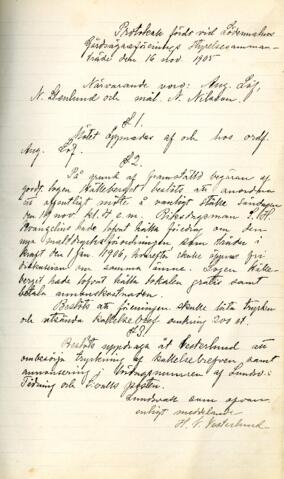 Protokoll fördt vid Södermalms
Jordägareförenings Styrelsesamman-
träde den 16 nov. 1905
Närvarande voro: Aug. Löf,
N. Stenlund och mål. N. Nilsson.
§ 1.
Mötet öppnades af och hos ordf.
Aug. Löf.
§ 2.
På grund af framställd begäran af
logen Hälleberget beslöts att anordna
ett offentligt möte å vanligt ställe Söndagen
den 19 nov kl. 4 e.m. Riksdagsman S. H.
Kvarnzelius hade lofvat hålla föredrag om den
nya Smältdrycksförordningen som träder i
kraft den 1 Jan. 1906, hvarefter skulle öppnas fri
diskussion om samma ämne. Logen Hälle-
berget hade lofvat hålla lokalen gratis samt
betala annonskostnaden.
Beslöts att föreningen skulle låta trycka
och utsända kallelsebref omkring 200 st.
§ 3.
Beslöts uppdraga åt Vesterlund att
ombesörja tryckning af kallelsebrefven samt
annonsering i lördagsnumren af Sundsv:s
Tidning och Sv:alls Posten.
Sundsvall som ofvan.
enligt meddelande
H. V. Vesterlund